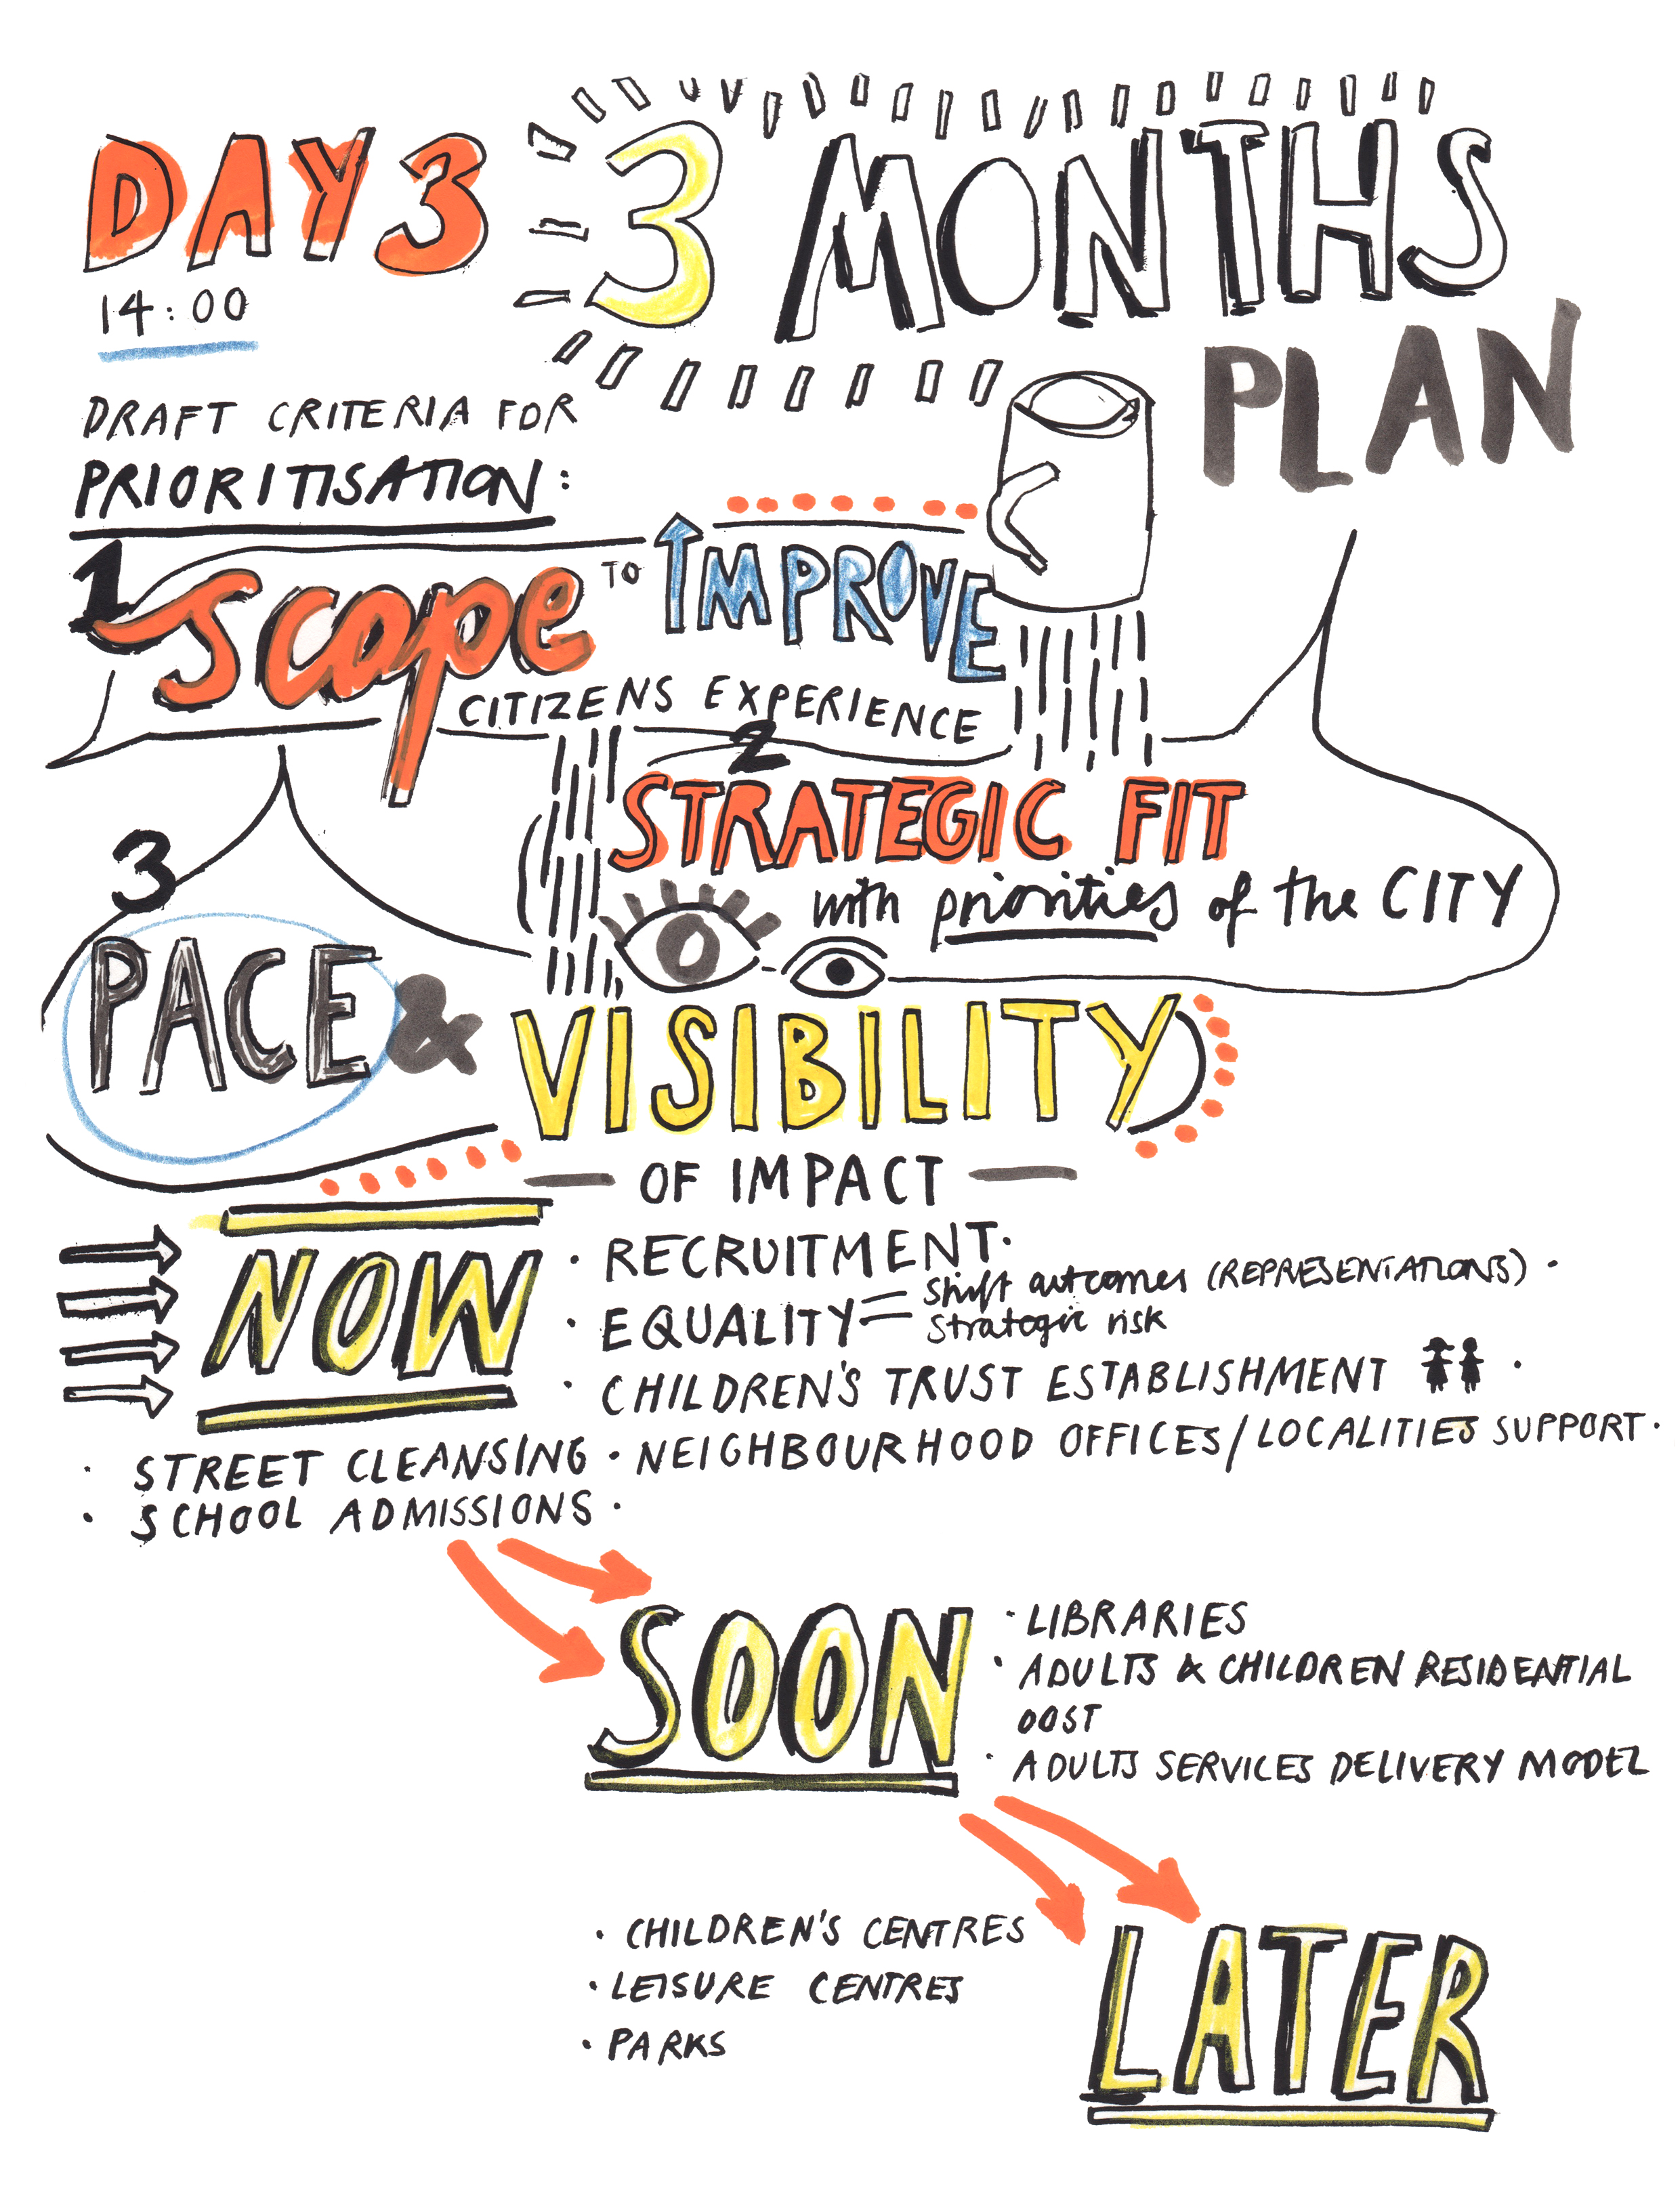 DAY 3
14:00
3 MONTHS
PLAN
DRAFT CRITERIA FOR
PRIORITISATION:
1
scope TO IMPROVE
CITIZENS EXPERIENCE
2
STRATEGIC FIT
with priorities of the CITY
3
PACE & VISIBILITY
OF IMPACT
NOW
· RECRUITMENT ·
· EQUALITY = shift outcomes (REPRESENTATIONS) ·
strategic risk
· CHILDREN'S TRUST ESTABLISHMENT ·
· NEIGHBOURHOOD OFFICES/LOCALITIES SUPPORT ·
· STREET CLEANSING
· SCHOOL ADMISSIONS ·
SOON
· LIBRARIES
· ADULTS & CHILDREN RESIDENTIAL
COST
· ADULTS SERVICES DELIVERY MODEL
· CHILDREN'S CENTRES
· LEISURE CENTRES
· PARKS
LATER